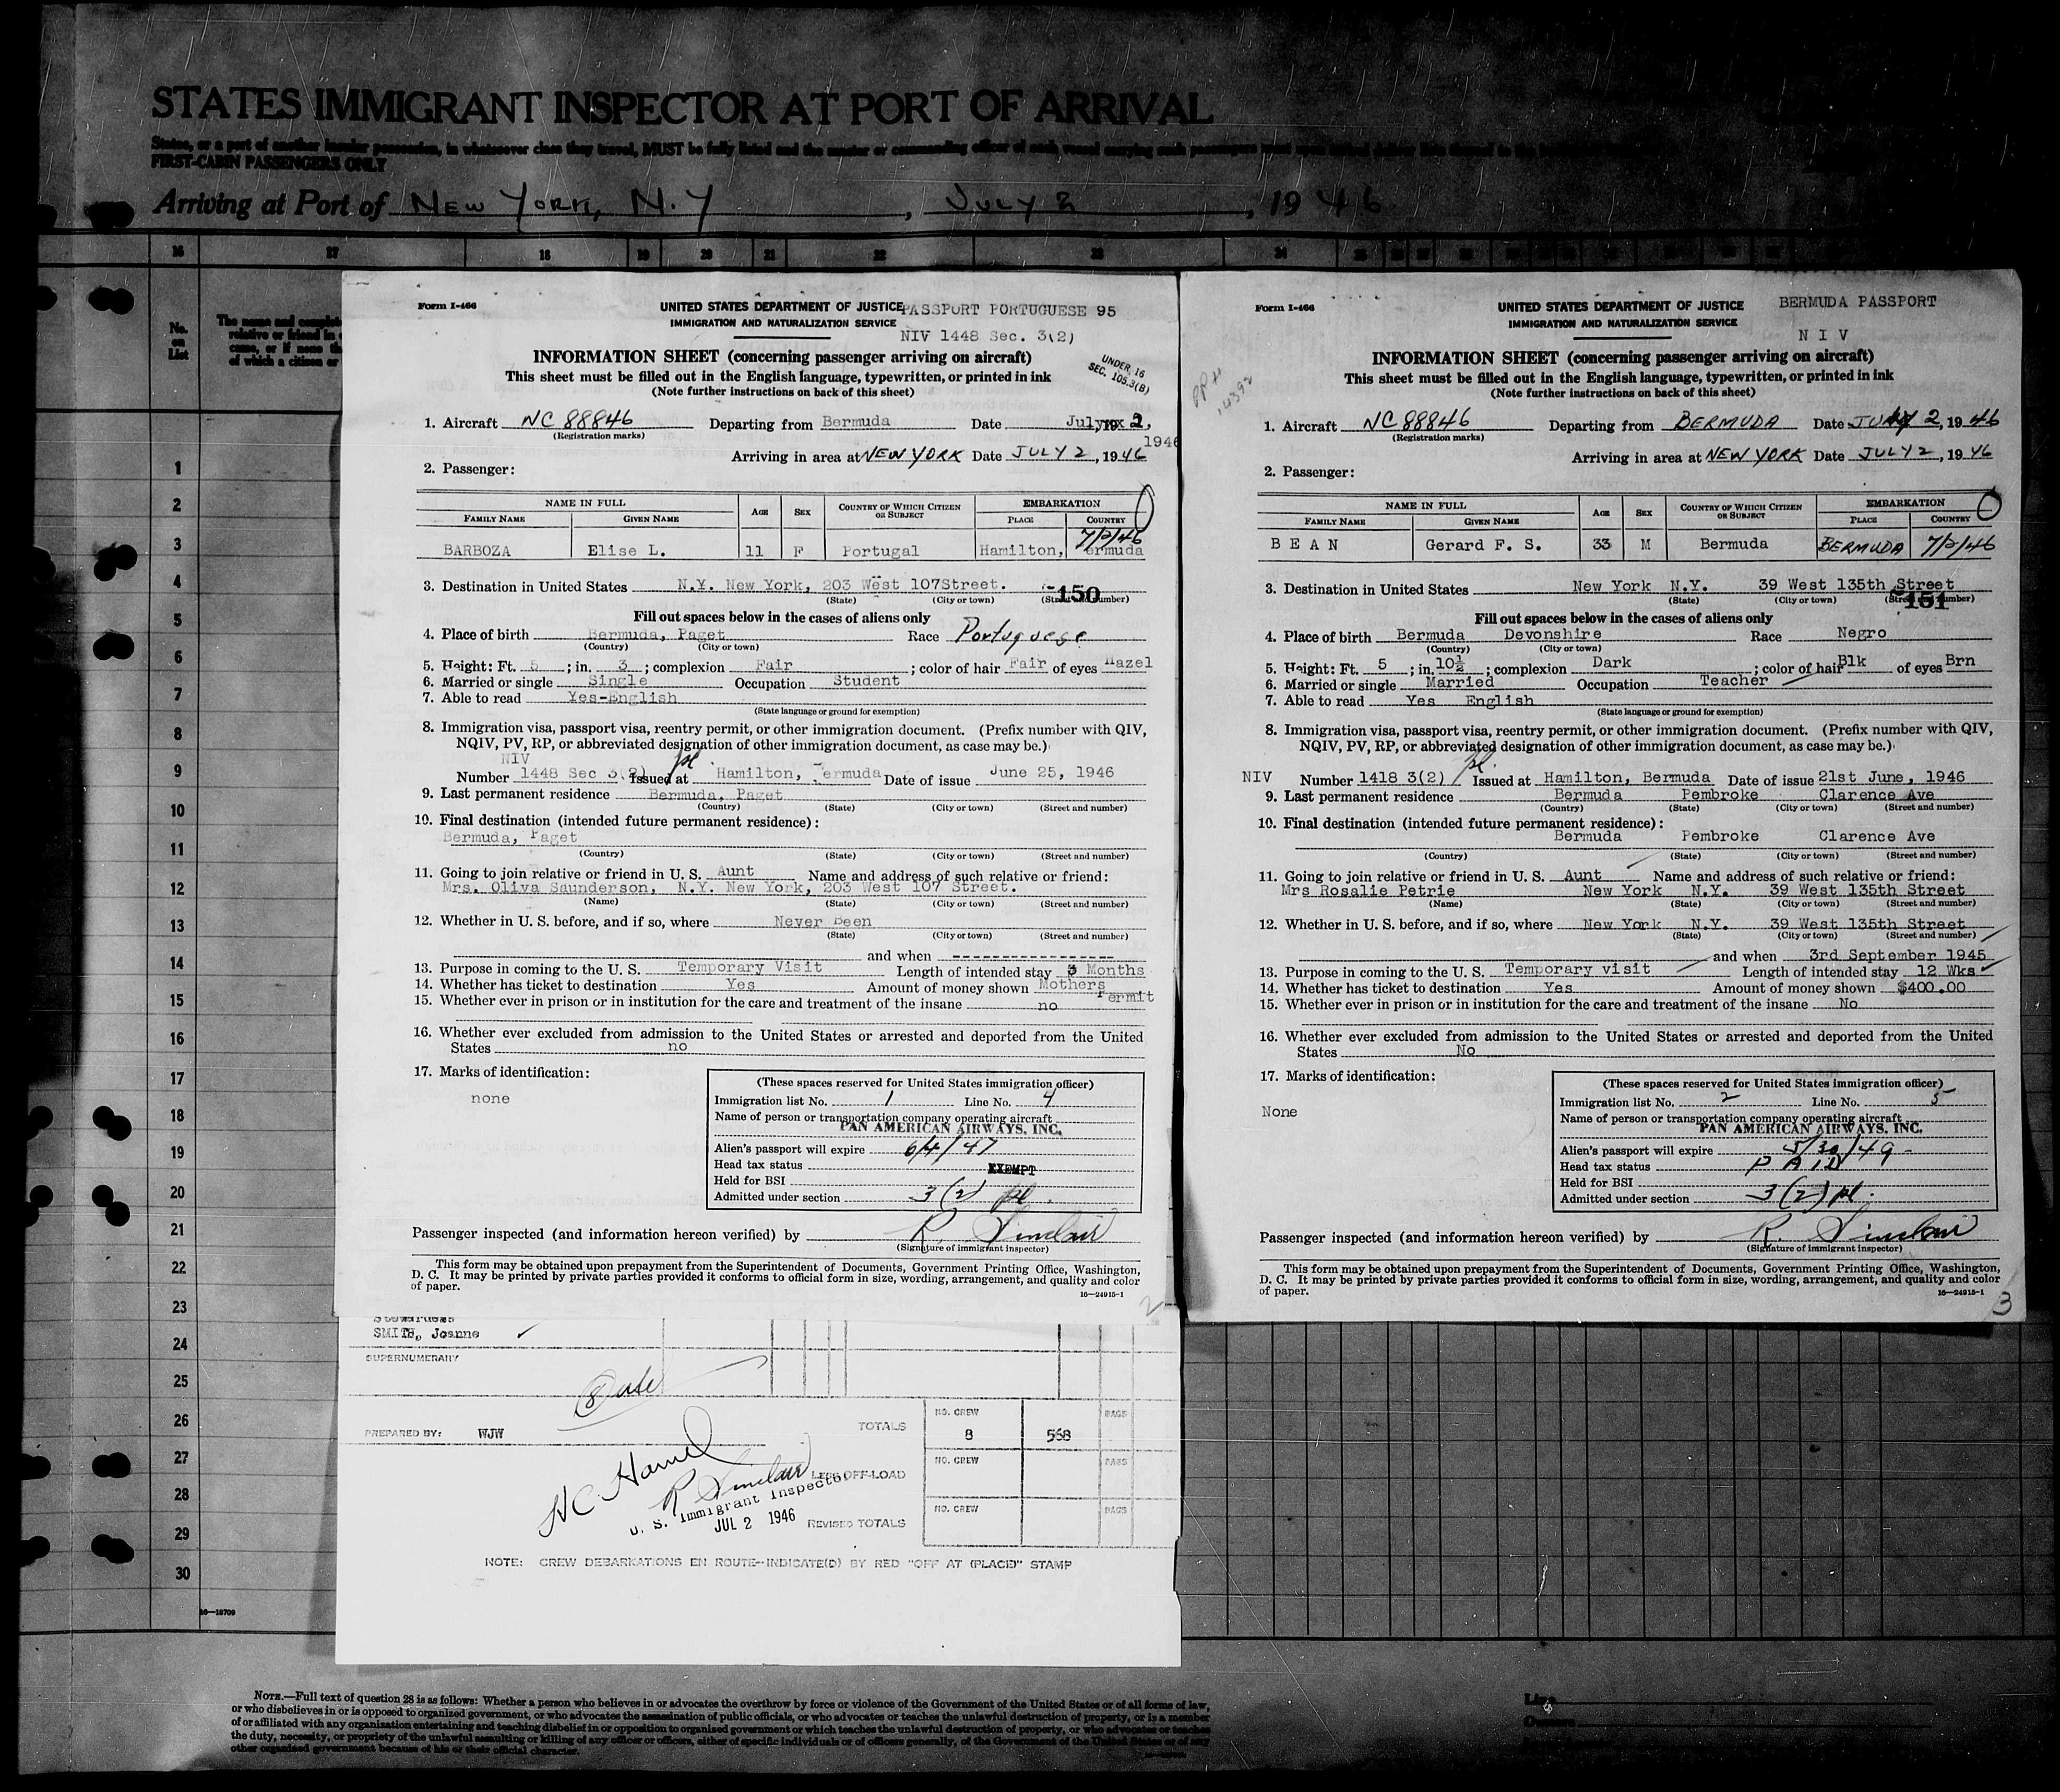 STATES IMMIGRANT INSPECTOR AT PORT OF ARRIVAL
States, or a part of another insular possession, in whatsoever class they travel, MUST be fully listed and the master or commanding officer of each vessel carrying such passengers must upon arrival deliver lists thereof to the
FIRST-CABIN PASSENGERS ONLY
Arriving at Port of NEW YORK, N.Y , JULY 2 , 1946
16 17 18 19 20 21 22 23 24
No. on List
The name and complete
relative or friend in
case, or if none th
of which a citizen or
1
2
3
4
5
6
7
8
9
10
11
12
13
14
15
16
17
18
19
20
21
22
23
24
25
26
27
28
29
30
16—18709
Form I-466
UNITED STATES DEPARTMENT OF JUSTICE PASSPORT PORTUGUESE 95
IMMIGRATION AND NATURALIZATION SERVICE
NIV 1448 Sec. 3(2)
INFORMATION SHEET (concerning passenger arriving on aircraft)
UNDER 16
SEC. 105.3(B)
This sheet must be filled out in the English language, typewritten, or printed in ink
(Note further instructions on back of this sheet)
1. Aircraft NC 88846 Departing from Bermuda Date July 2, 1946
(Registration marks)
Arriving in area at NEW YORK Date JULY 2, 1946
2. Passenger:
NAME IN FULL AGE SEX COUNTRY OF WHICH CITIZEN OR SUBJECT EMBARKATION
FAMILY NAME GIVEN NAME PLACE COUNTRY
7/2/46
BARBOZA Elise L. 11 F Portugal Hamilton, ermuda
3. Destination in United States N.Y. New York, 203 West 107Street.
150
(State) (City or town) (Street and number)
Fill out spaces below in the cases of aliens only
4. Place of birth Bermuda, Paget Race Portuguese
(Country) (City or town)
5. Height: Ft. 5 ; in. 3 ; complexion Fair ; color of hair Fair of eyes Hazel
6. Married or single Single Occupation Student
7. Able to read Yes-English
(State language or ground for exemption)
8. Immigration visa, passport visa, reentry permit, or other immigration document. (Prefix number with QIV,
NQIV, PV, RP, or abbreviated designation of other immigration document, as case may be.)
NIV
Number 1448 Sec 3(2) Issued at Hamilton, ermuda Date of issue June 25, 1946
9. Last permanent residence Bermuda, Paget
(Country) (State) (City or town) (Street and number)
10. Final destination (intended future permanent residence):
Bermuda, Paget
(Country) (State) (City or town) (Street and number)
11. Going to join relative or friend in U. S. Aunt Name and address of such relative or friend:
Mrs. Oliva Saunderson, N.Y. New York, 203 West 107 Street.
(Name) (State) (City or town) (Street and number)
12. Whether in U. S. before, and if so, where Never Been
(State) (City or town) (Street and number)
and when ------------------
13. Purpose in coming to the U. S. Temporary Visit Length of intended stay 3 Months
14. Whether has ticket to destination Yes Amount of money shown Mothers Permit
15. Whether ever in prison or in institution for the care and treatment of the insane no
16. Whether ever excluded from admission to the United States or arrested and deported from the United
States no
17. Marks of identification:
none
(These spaces reserved for United States immigration officer)
Immigration list No. 1 Line No. 4
Name of person or transportation company operating aircraft
PAN AMERICAN AIRWAYS, INC.
Alien's passport will expire 6/4/47
Head tax status EXEMPT
Held for BSI
Admitted under section 3(2) pl.
Passenger inspected (and information hereon verified) by R. Sinclair
(Signature of immigrant inspector)
This form may be obtained upon prepayment from the Superintendent of Documents, Government Printing Office, Washington,
D. C. It may be printed by private parties provided it conforms to official form in size, wording, arrangement, and quality and color
of paper.
16—24915-1
2
Stewardess
SMITH, Joanne
SUPERNUMERARY
PREPARED BY: WJW
TOTALS
NO. CREW BAGS
8 568
LESS OFF-LOAD
NO. CREW BAGS
REVISED TOTALS
NO. CREW BAGS
R Sinclair
U. S. Immigrant Inspector
JUL 2 1946
NOTE: CREW DEBARKATIONS EN ROUTE--INDICATE(D) BY RED "OFF AT (PLACE)" STAMP
Form I-466
UNITED STATES DEPARTMENT OF JUSTICE BERMUDA PASSPORT
IMMIGRATION AND NATURALIZATION SERVICE
N I V
INFORMATION SHEET (concerning passenger arriving on aircraft)
This sheet must be filled out in the English language, typewritten, or printed in ink
(Note further instructions on back of this sheet)
1. Aircraft NC 88846 Departing from BERMUDA Date JULY 2, 1946
(Registration marks)
Arriving in area at NEW YORK Date JULY 2, 1946
2. Passenger:
NAME IN FULL AGE SEX COUNTRY OF WHICH CITIZEN OR SUBJECT EMBARKATION
FAMILY NAME GIVEN NAME PLACE COUNTRY
B E A N Gerard F. S. 33 M Bermuda BERMUDA 7/2/46
3. Destination in United States New York N.Y. 39 West 135th Street
151
(State) (City or town) (Street and number)
Fill out spaces below in the cases of aliens only
4. Place of birth Bermuda Devonshire Race Negro
(Country) (City or town)
5. Height: Ft. 5 ; in. 10½ ; complexion Dark ; color of hair Blk of eyes Brn
6. Married or single Married Occupation Teacher
7. Able to read Yes English
(State language or ground for exemption)
8. Immigration visa, passport visa, reentry permit, or other immigration document. (Prefix number with QIV,
NQIV, PV, RP, or abbreviated designation of other immigration document, as case may be.)
NIV Number 1418 3(2) Issued at Hamilton, Bermuda Date of issue 21st June, 1946
9. Last permanent residence Bermuda Pembroke Clarence Ave
(Country) (State) (City or town) (Street and number)
10. Final destination (intended future permanent residence):
Bermuda Pembroke Clarence Ave
(Country) (State) (City or town) (Street and number)
11. Going to join relative or friend in U. S. Aunt Name and address of such relative or friend:
Mrs Rosalie Petrie New York N.Y. 39 West 135th Street
(Name) (State) (City or town) (Street and number)
12. Whether in U. S. before, and if so, where New York N.Y. 39 West 135th Street
(State) (City or town) (Street and number)
and when 3rd September 1945
13. Purpose in coming to the U. S. Temporary visit Length of intended stay 12 Wks
14. Whether has ticket to destination Yes Amount of money shown $400.00
15. Whether ever in prison or in institution for the care and treatment of the insane No
16. Whether ever excluded from admission to the United States or arrested and deported from the United
States No
17. Marks of identification:
None
(These spaces reserved for United States immigration officer)
Immigration list No. 2 Line No. 5
Name of person or transportation company operating aircraft
PAN AMERICAN AIRWAYS, INC.
Alien's passport will expire 5/30/49
Head tax status PAID
Held for BSI
Admitted under section 3(2) pl.
Passenger inspected (and information hereon verified) by R. Sinclair
(Signature of immigrant inspector)
This form may be obtained upon prepayment from the Superintendent of Documents, Government Printing Office, Washington,
D. C. It may be printed by private parties provided it conforms to official form in size, wording, arrangement, and quality and color
of paper.
16—24915-1
3
NOTE.—Full text of question 28 is as follows: Whether a person who believes in or advocates the overthrow by force or violence of the Government of the United States or of all forms of law,
or who disbelieves in or is opposed to organized government, or who advocates the assassination of public officials, or who advocates or teaches the unlawful destruction of property, or is a member
of or affiliated with any organization entertaining and teaching disbelief in or opposition to organized government or which teaches the unlawful destruction of property, or who advocates or teaches
the duty, necessity, or propriety of the unlawful assaulting or killing of any officer or officers, either of specific individuals or of officers generally, of the Government of the United States or of any
other organized government because of his or their official character.
Line
Owners